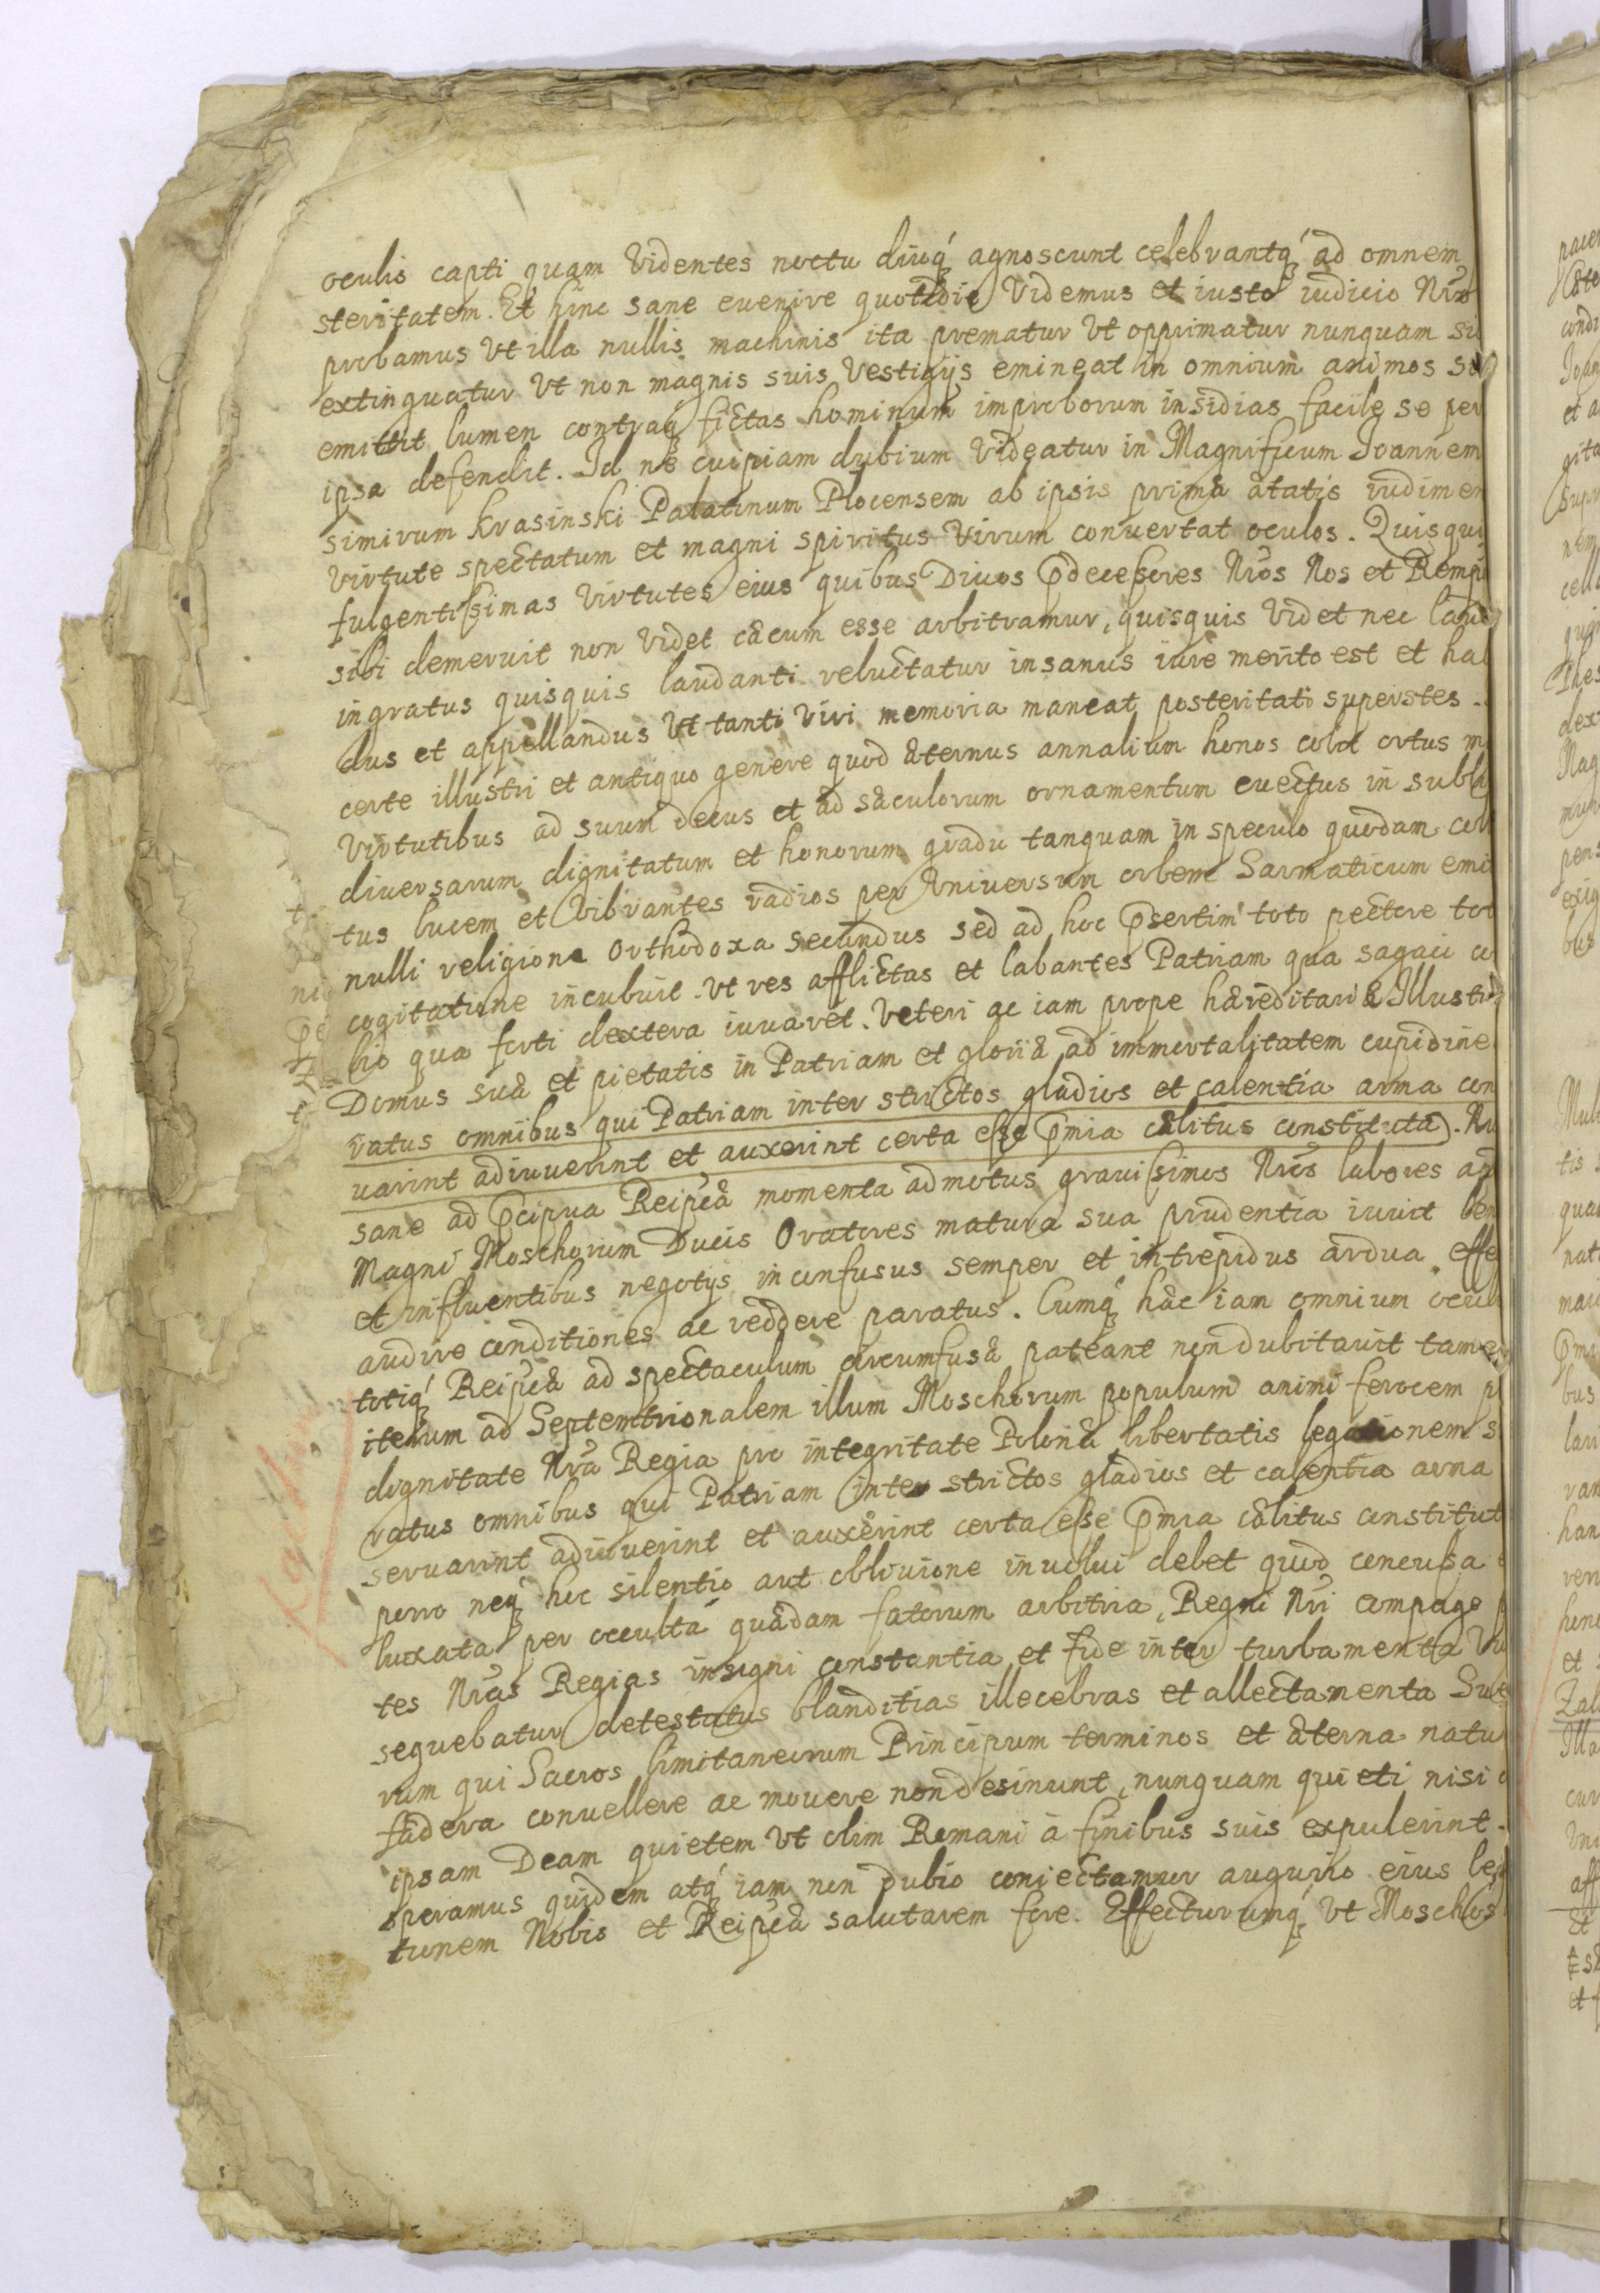 oculis capti quam videntes noctu diuq́ agnoscunt celebrantq́ ad omnem
steritatem. Et hinc sane euenire quotidie videmus et iusto iudicio Nro
probamus vt illa nullis machinis ita prematur vt opprimatur nunquam si
extinguatur vt non magnis suis vestigijs emineat in omnium animos su
emittit lumen contraq fictas hominum improborum insidias facile se per
ipsa defendit. Id ne cuipiam dubium videatur in Magnificum Joannem
simirum Krasinski Palatinum Plocensem ab ipsis prima ætatis rudimen
virtute spectatum et magni spiritus virum conuertat oculos. Quisqui
fulgentissimas virtutes eius quibus Diuos Pdecessores Nros Nos et Remp
sibi demeruit non videt cæcum esse arbitramur, quisquis videt nec laud
ingratus quisquis laudanti reluctatur insanus iure merito est et hab
dus et appellandus vt tanti viri memoria maneat posteritati superstes.
certe illustri et antiquo genere quod æternus annalium honos colit ortus m
virtutibus ad suum decus et ad sæculorum ornamentum euectus in subli
diuersarum dignitatum et honorum gradu tanquam in speculo quodam col
tus lucem et vibrantes radios per vniuersum orbem Sarmaticum emi
nulli religione Orthodoxa secundus sed ad hoc Psertim toto pectore tot
cogitatione incubuit. vt res afflictas et labantes Patriam qua sagaci co
lio qua forti dextera iuuaret. Veteri ac iam prope hæreditariæ Illustri
Domus suæ et pietatis in Patriam et gloriæ ad immortalitatem cupidine
ratus omnibus qui Patriam inter strictos gladios et calentia arma con
uarint adiuuerint et auxerint certa esse Pmia cælitus constituta. Nu
sane ad Pcipua Reipcæ momenta admotus grauissimos Nros labores ap
Magni Moschorum Ducis Oratores matura sua prudentia iuuit ben
et influentibus negotijs inconfusus semper et intrepidus ardua effe
audire conditiones ac reddere paratus. Cumq́ hæc iam omnium ocul
totiq́ Reipcæ ad spectaculum circumfusæ pateant non dubitauit tamen
iterum ad Septemtrionalem illum Moschorum populum animi ferocem p
dignitate Nra Regia pro integritate Polonæ libertatis legationem s
ratus omnibus qui Patriam inter strictos gladios et calentia arma
seruarint adiuuerint et auxerint certa esse Pmia cælitus constitut
porro neq́ hoc silentio aut obliuione inuolui debet quod concussa
luxata per occulta quædam fatorum arbitria, Regni Nri compage p
tes Nras Regias insigni constantia et fide inter turbamenta
sequebatur detestatus blanditias illecebras et allectamenta Sue
rum qui Sacros limitaneorum Principum terminos et æterna natu
fædera conuellere ac mouere non desinunt, nunquam quieti nisi
ipsam Deam quietem vt olim Romani à finibus suis expulerint.
speramus quidem atq́ iam non dubio coniectamur augurio eius lega
tionem Nobis et Reipcæ salutarem fore. Effecturumq́ vt Moschos